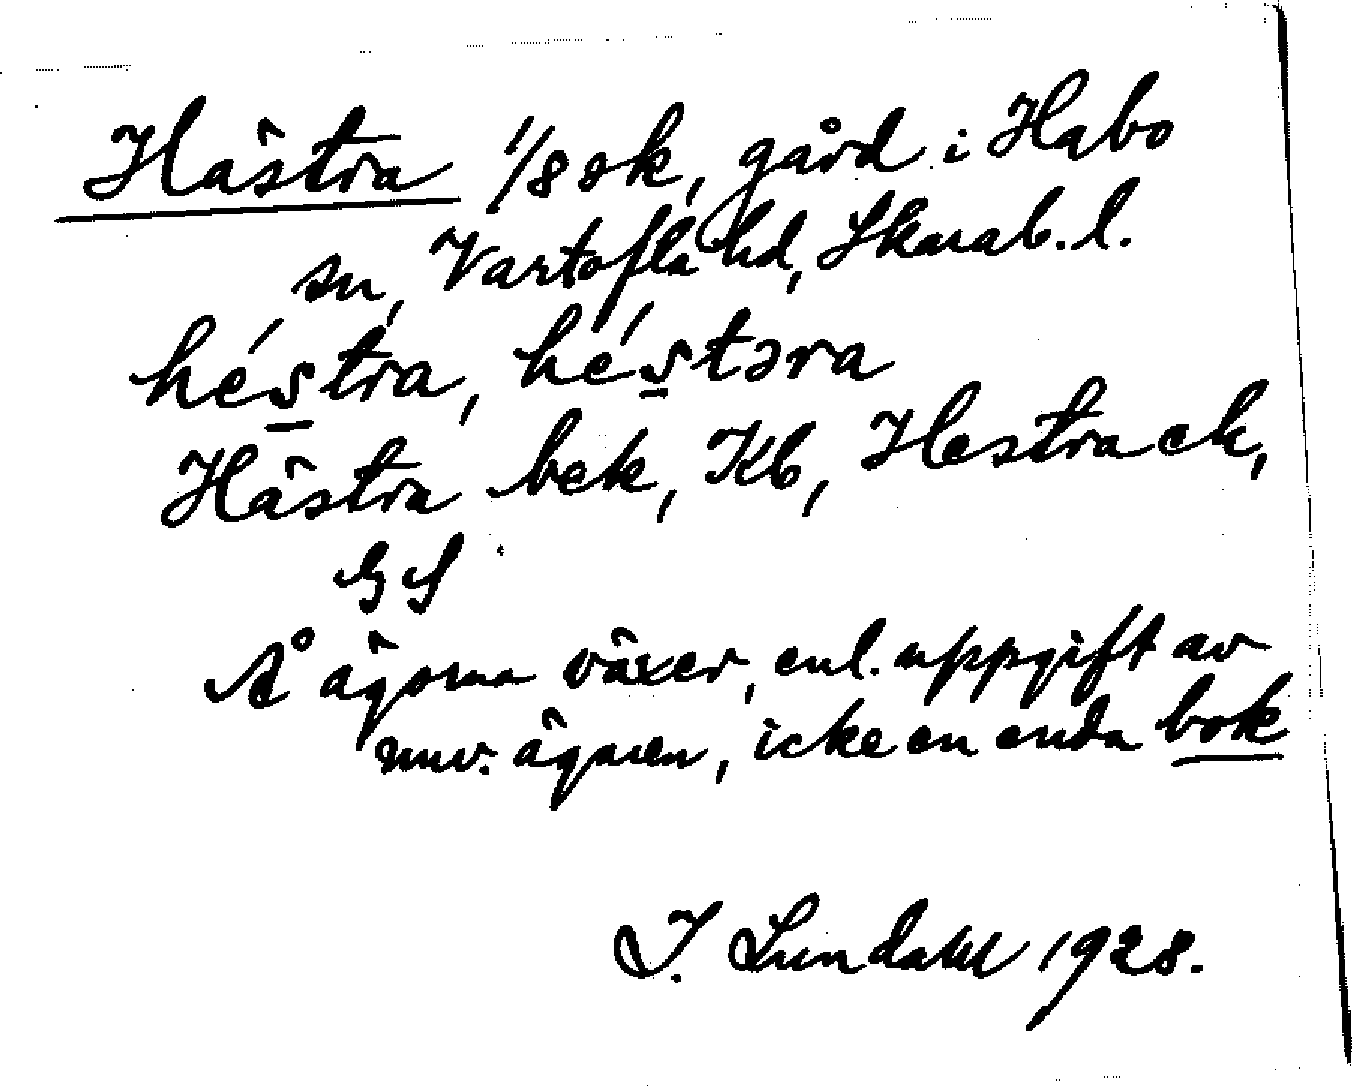 Hästra 1/8 ok, gård i Habo
sn, Vartofta hd, Skarab. l.
héstra, héstəra
Hästra bek, Kb, Hestra ek,
GS
Å ägorna växer, enl. uppgift av
nuv. ägaren, icke en enda bok
I. Lundahl 1928.